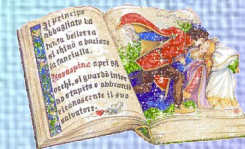 Al principe
abbagliato da
tanta bellezza
si chinò a baciare
la fanciulla.
Rosaspina aprì gli
occhi, si guardò intor
no stupita e abbracciò
riconoscente il suo
salvatore.